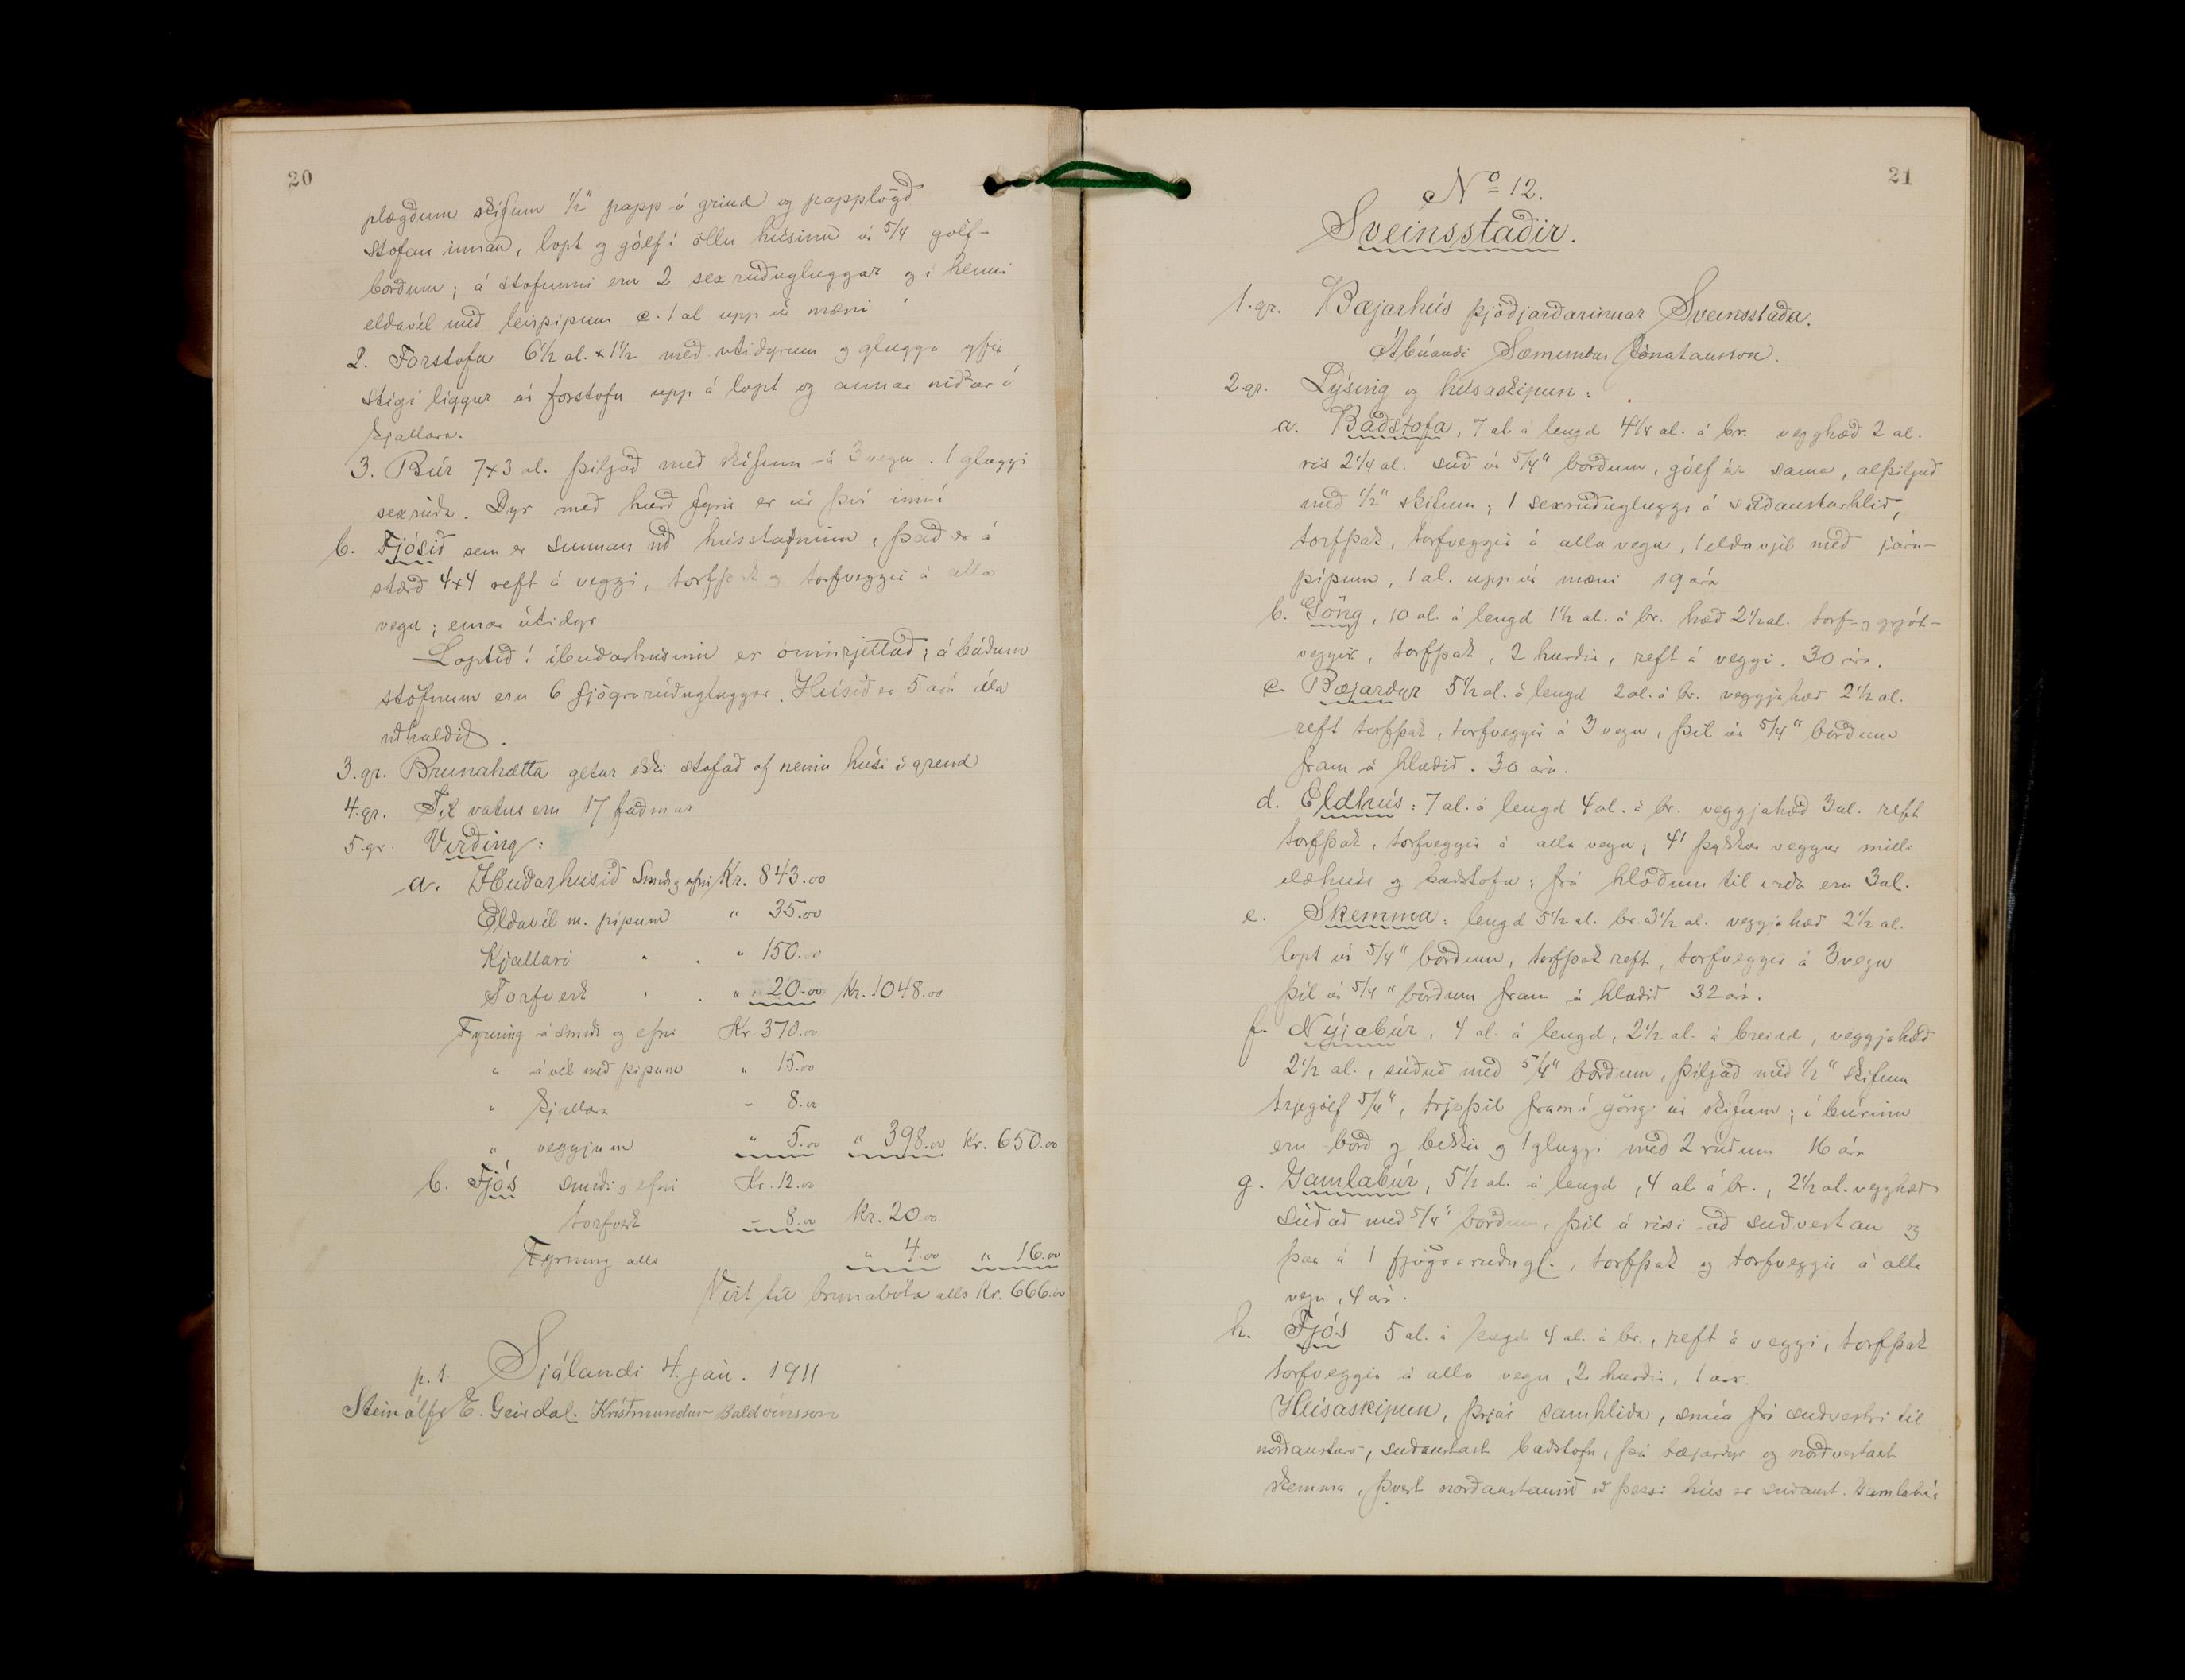 20
plægðum skífum 1/2" papp á grind og papplögð
stofan innan, lopt og gólf í öllu húsinu úr 5/4 gólf-
borðum; á stofunni eru 2 sexrúðugluggar og í henni
eldavél með leirpípum c. 1 al upp úr mæni
2. Forstofa 6 1/2 al. x 1 1/2 með útidyrum og glugga yfir
Stigi liggur úr forstofu upp á lopt og annar niður í
kjallara.
3. Búr 7x3 al. þiljað með skífum á 3 vegu. 1 gluggi
sexrúða. Dyr með hurð fyrir er úr því inní
b. Fjósið sem er sunnan við hússtafninn, það er á
stærð 4x4 reft á veggi, torfþak og torfveggir á alla
vegu; einar útidyr
Loptið í íbúðarhúsinu er óinnrjettað; á báðum
stöfnum eru 6 fjögrarúðugluggar. Húsið er 5 ára illa
viðhaldið.
3. gr. Brunahætta getur ekki stafað af neinu húsi í grend
4. gr. Til vatns eru 17 faðmar
5. gr. Virðing:
a. Íbúðarhúsið Smíði og efni Kr. 843.00
Eldavél m. pípum " 35.00
Kjallari " . " 150.00
Torfverk " . " 20.00 Kr. 1048.00
Fyrning á smíði og efni Kr. 370.00
" á vél með pípum " 15.00
" kjallara - 8.00
" veggjum " 5.00 " 398.00 Kr. 650.00
b. Fjós smíði og efni Kr. 12.00
torfverk - 8.00 Kr. 20.00
Fyrning alls " 4.00 " 16.00
Virt til brunabóta alls Kr. 666.00
p.t. Sjálandi 4. jan. 1911
Steinólfr E. Geirdal. Kristmundur Baldvinsson
21
No 12.
Sveinsstaðir.
1. gr. Bæjarhús þjóðjarðarinnar Sveinsstaða.
Ábúandi Sæmundur Jónatansson.
2. gr. Lýsing og húsaskipun:
a. Baðstofa, 7 al á lengd 4 1/4 al. á br. vegghæð 2 al.
ris 2 1/4 al. súð úr 5/4" borðum, gólf úr sama, alþiljuð
með 1/2" skífum; 1 sexrúðugluggi á suðausturhlið,
torfþak, torfveggir á alla vegu, 1 eldavjel með járn-
pípum, 1 al. upp úr mæni 19 ára
b. Göng, 10 al. á lengd 1 1/2 al. á br. hæð 2 1/2 al. torf- og grjót-
veggir, torfþak, 2 hurðir, reft á veggi. 30 ára.
c. Bæjardyr 5 1/2 al. á lengd 2 al. á br. veggjahæð 2 1/2 al.
reft torfþak, torfveggir á 3 vegu, þil úr 5/4" borðum
fram á hlaðið. 30 ára.
d. Eldhús: 7 al. á lengd 4 al. á br. veggjahæð 3 al. reft
torfþak, torfveggir á alla vegu; 4' þykkur veggur milli
eldhúss og baðstofu; frá hlóðum til viða eru 3 al.
e. Skemma: lengd 5 1/2 al. br. 3 1/2 al. veggjahæð 2 1/2 al.
lopt úr 5/4" borðum, torfþak reft, torfveggir á 3 vegu
þil úr 5/4" borðum fram á hlaðið 32 ára.
f. Nýjabúr, 4 al. á lengd, 2 1/2 al. á breidd, veggjahæð
2 1/2 al., súðuð með 5/4" borðum, þiljað með 1/2" skífum
trjególf 5/4", trjeþil fram í göng úr skífum; í búrinu
eru borð og bekkir og 1 gluggi með 2 rúðum 16 ára
g. Gamlabúr, 5 1/2 al. á lengd, 4 al á br., 2 1/2 al. vegghæð
súðað með 5/4" borðum, þil á risi að suðvestan og
þar á 1 fjögrarúðugl., torfþak og torfveggir á alla
vegu, 4 ára.
h. Fjós 5 al. á lengd 4 al. á br., reft á veggi, torfþak
torfveggir á alla vegu, 2 hurðir, 1 árs.
Húsaskipun, þrjár samhliða, snúa frá suðvestri til
norðausturs, suðaustast baðstofa, þá bæjardyr og norðvestast
skemma, þvert norðaustanvið við þessi hús er suðaust. Gamlabúr